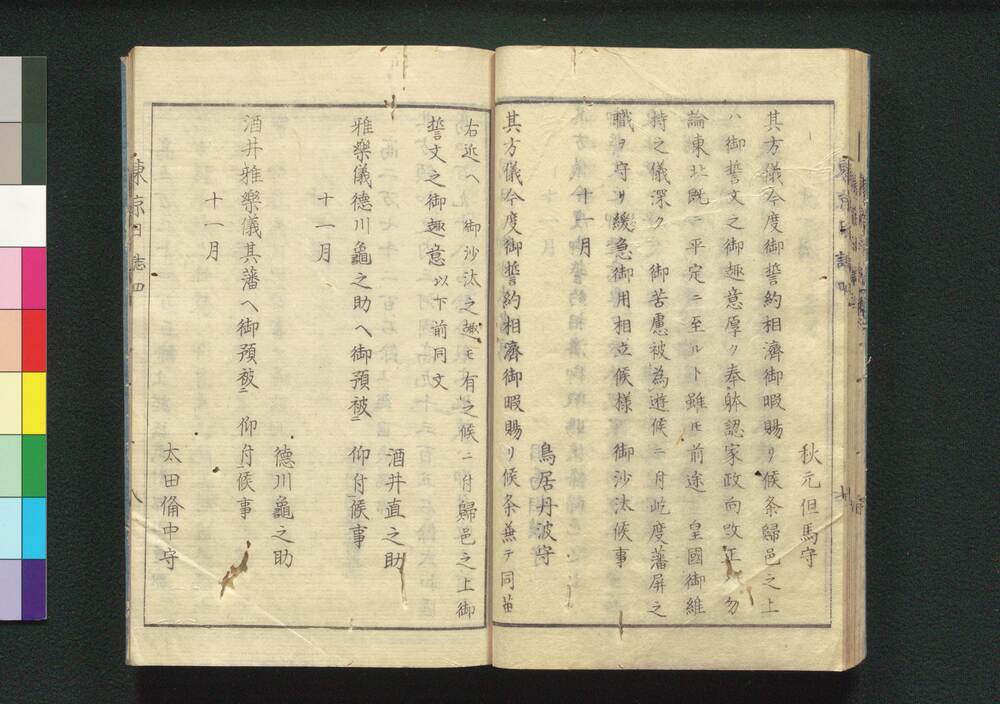 秋元但馬守
其方儀今度御誓約相濟御暇賜リ候条歸邑之上
ハ御誓文之御趣意厚ク奉躰認家政向改正ハ勿
論東北既ニ平定ニ至ルト雖モ前途 皇國御維
持之儀深ク 御苦慮被為遊候ニ付屹度藩屏之
職ヲ守リ緩急御用相立候様 御沙汰候事
十一月
鳥居丹波守
其方儀今度御誓約相濟御暇賜リ候条兼テ同苗
右近ヘ 御沙汰之趣モ有之候ニ付歸邑之上御
誓文之御趣意以下前同文
酒井直之助
雅樂儀德川龜之助ヘ御預被 仰付候事
十一月
德川龜之助
酒井雅樂儀其藩ヘ御預被 仰付候事
十一月
太田備中守
東京日誌四
八